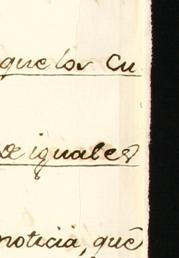 que los Cu
de iguales
noticia, que